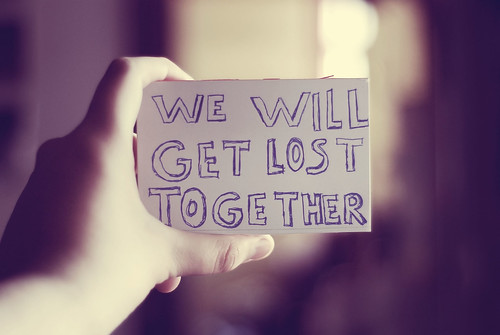 WE WILL
GET LOST
TOGETHER